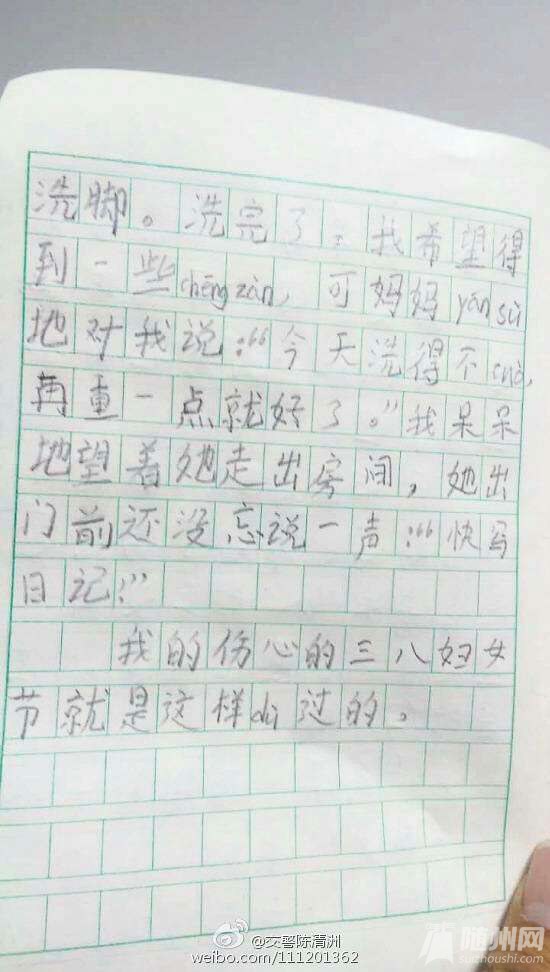 洗脚。洗完了，我希望得
到一些chēngzàn，可妈妈yánsù
地对我说：“今天洗得不cuò，
再重一点就好了。”我呆呆
地望着她走出房间，她出
门前还没忘说一声：“快写
日记！”
我的伤心的三八妇女
节就是这样dù过的。
@交警陈清洲
weibo.com/111201362
随州网
suizhoushi.com